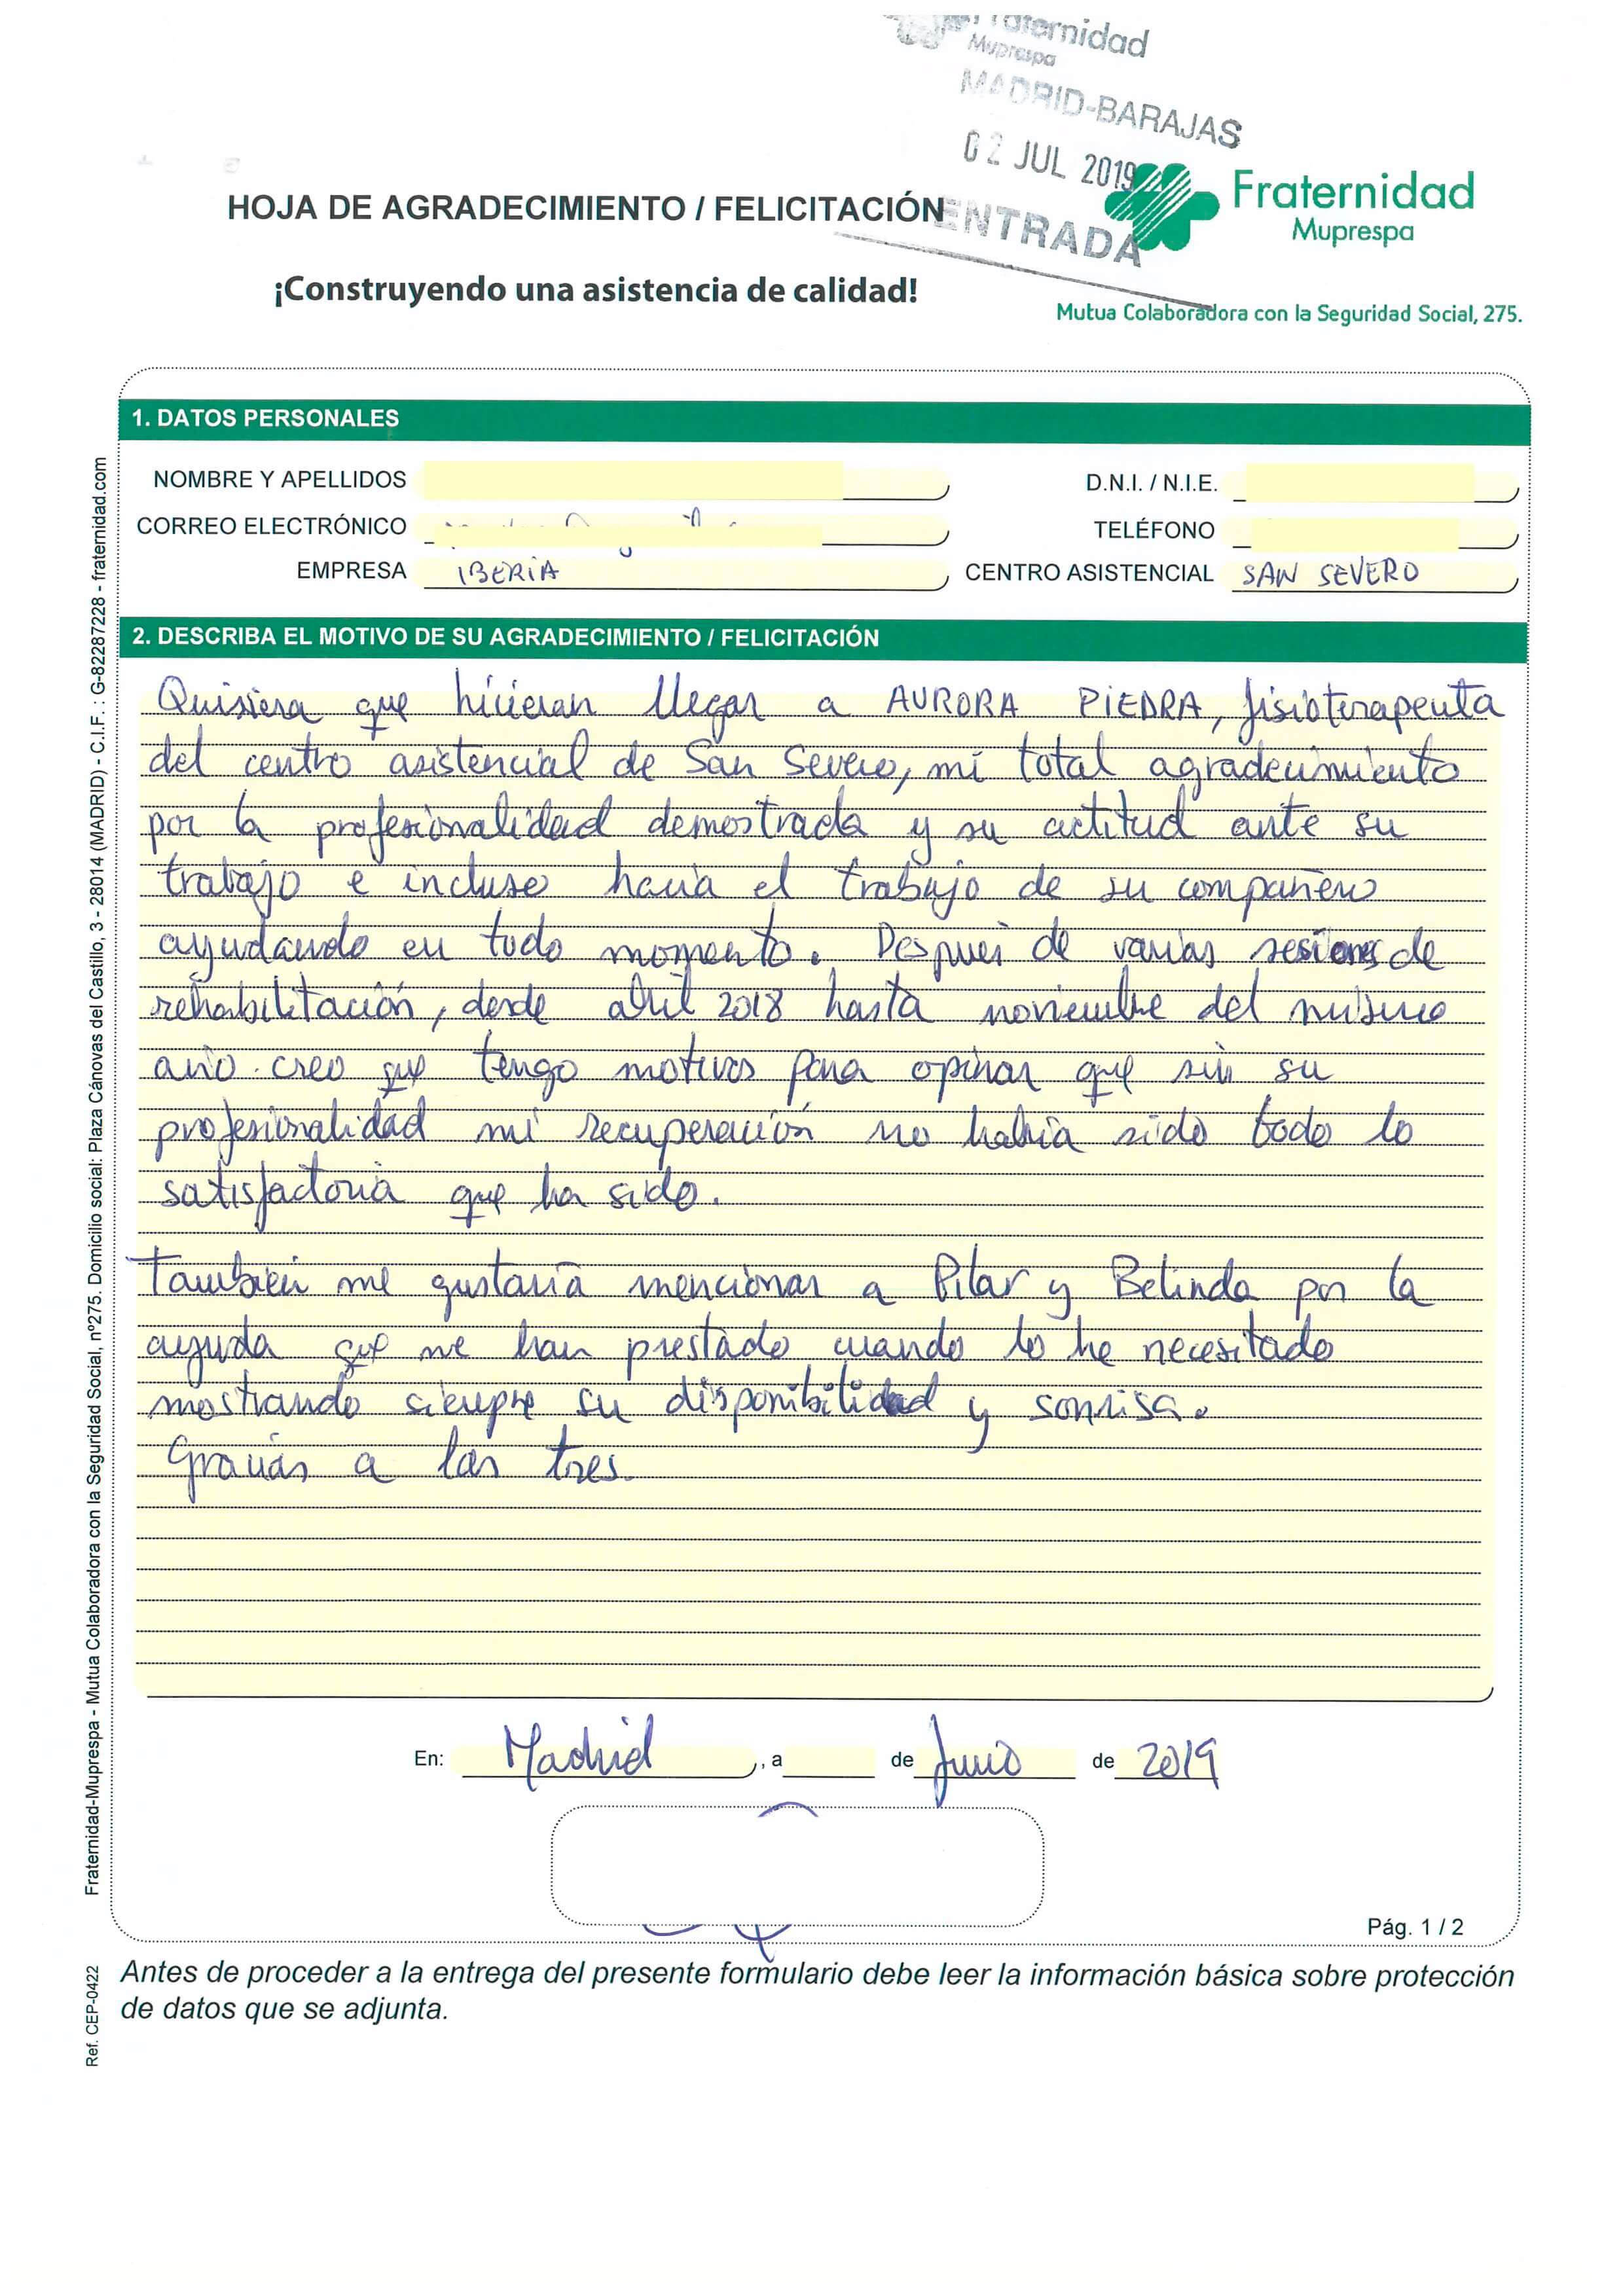 Fraternidad
Muprespa
MADRID-BARAJAS
02 JUL 2019
ENTRADA
HOJA DE AGRADECIMIENTO / FELICITACIÓN
¡Construyendo una asistencia de calidad!
Fraternidad
Muprespa
Mutua Colaboradora con la Seguridad Social, 275.
1. DATOS PERSONALES
NOMBRE Y APELLIDOS D.N.I. / N.I.E.
CORREO ELECTRÓNICO TELÉFONO
EMPRESA IBERIA CENTRO ASISTENCIAL SAN SEVERO
2. DESCRIBA EL MOTIVO DE SU AGRADECIMIENTO / FELICITACIÓN
Quisiera que hicieran llegar a AURORA PIEDRA, fisioterapeuta
del centro asistencial de San Severo, mi total agradecimiento
por la profesionalidad demostrada y su actitud ante su
trabajo e incluso hacia el trabajo de su compañero
ayudando en todo momento. Después de varias sesiones de
rehabilitación, desde abril 2018 hasta noviembre del mismo
año. creo que tengo motivos para opinar que sin su
profesionalidad mi recuperación no habría sido todo lo
satisfactoria que ha sido.
También me gustaría mencionar a Pilar y Belinda por la
ayuda que me han prestado cuando lo he necesitado
mostrando siempre su disponibilidad y sonrisa.
Gracias a las tres.
En: Madrid, a de Junio de 2019
Pág. 1 / 2
Antes de proceder a la entrega del presente formulario debe leer la información básica sobre protección
de datos que se adjunta.
Fraternidad-Muprespa - Mutua Colaboradora con la Seguridad Social, nº275. Domicilio social: Plaza Cánovas del Castillo, 3 - 28014 (MADRID) - C.I.F. : G-82287228 - fraternidad.com
Ref. CEP-0422